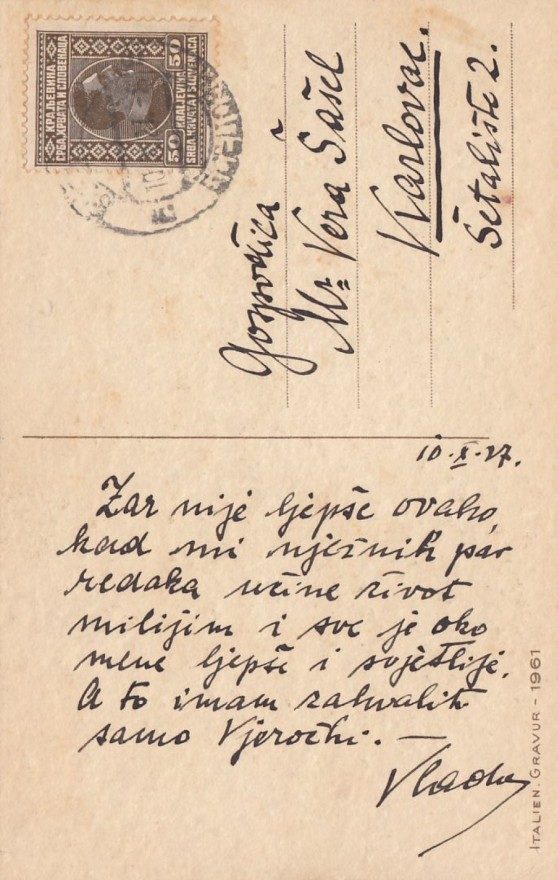 КРАЉЕВИНА
СРБА, ХРВАТА И СЛОВЕНАЦА
50
50
KRALJEVINA
SRBA, HRVATA I SLOVENACA
Gospodjica
Mr. Vera Šašel
Karlovac.
Šetalište 2.
10.X.27.
Zar nije ljepše ovako,
kad mi nježnih par
redaka učine život
milijim i sve je oko
mene ljepše i svjetlije.
A to imam zahvaliti
samo Vjeročki. —
Vlada
ITALIEN. GRAVUR - 1961